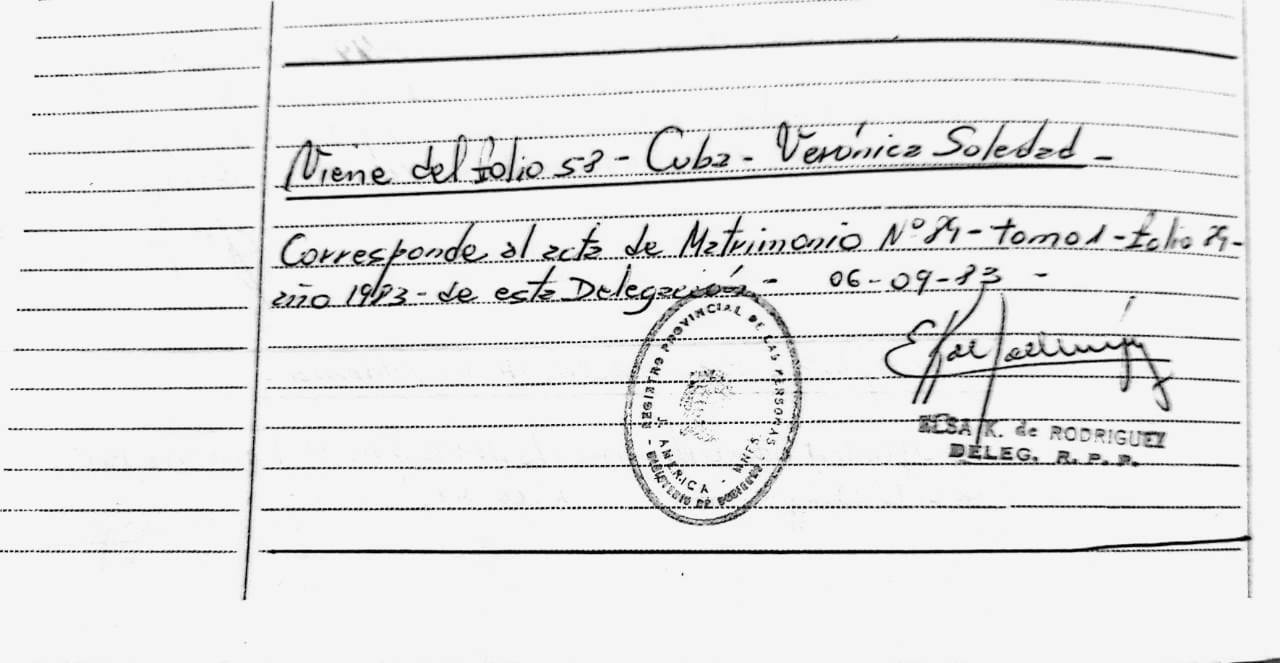 Viene del folio 58 - Cuba - Verónica Soledad -
Corresponde al acta de Matrimonio Nº 84 - tomo 1 - folio 84 -
año 1983 - de esta Delegación - 06-09-83 -
REGISTRO PROVINCIAL DE LAS PERSONAS
AMERICA - MNES
MINISTERIO DE GOBIERNO
ELSA K. de RODRIGUEZ
DELEG. R. P. P.